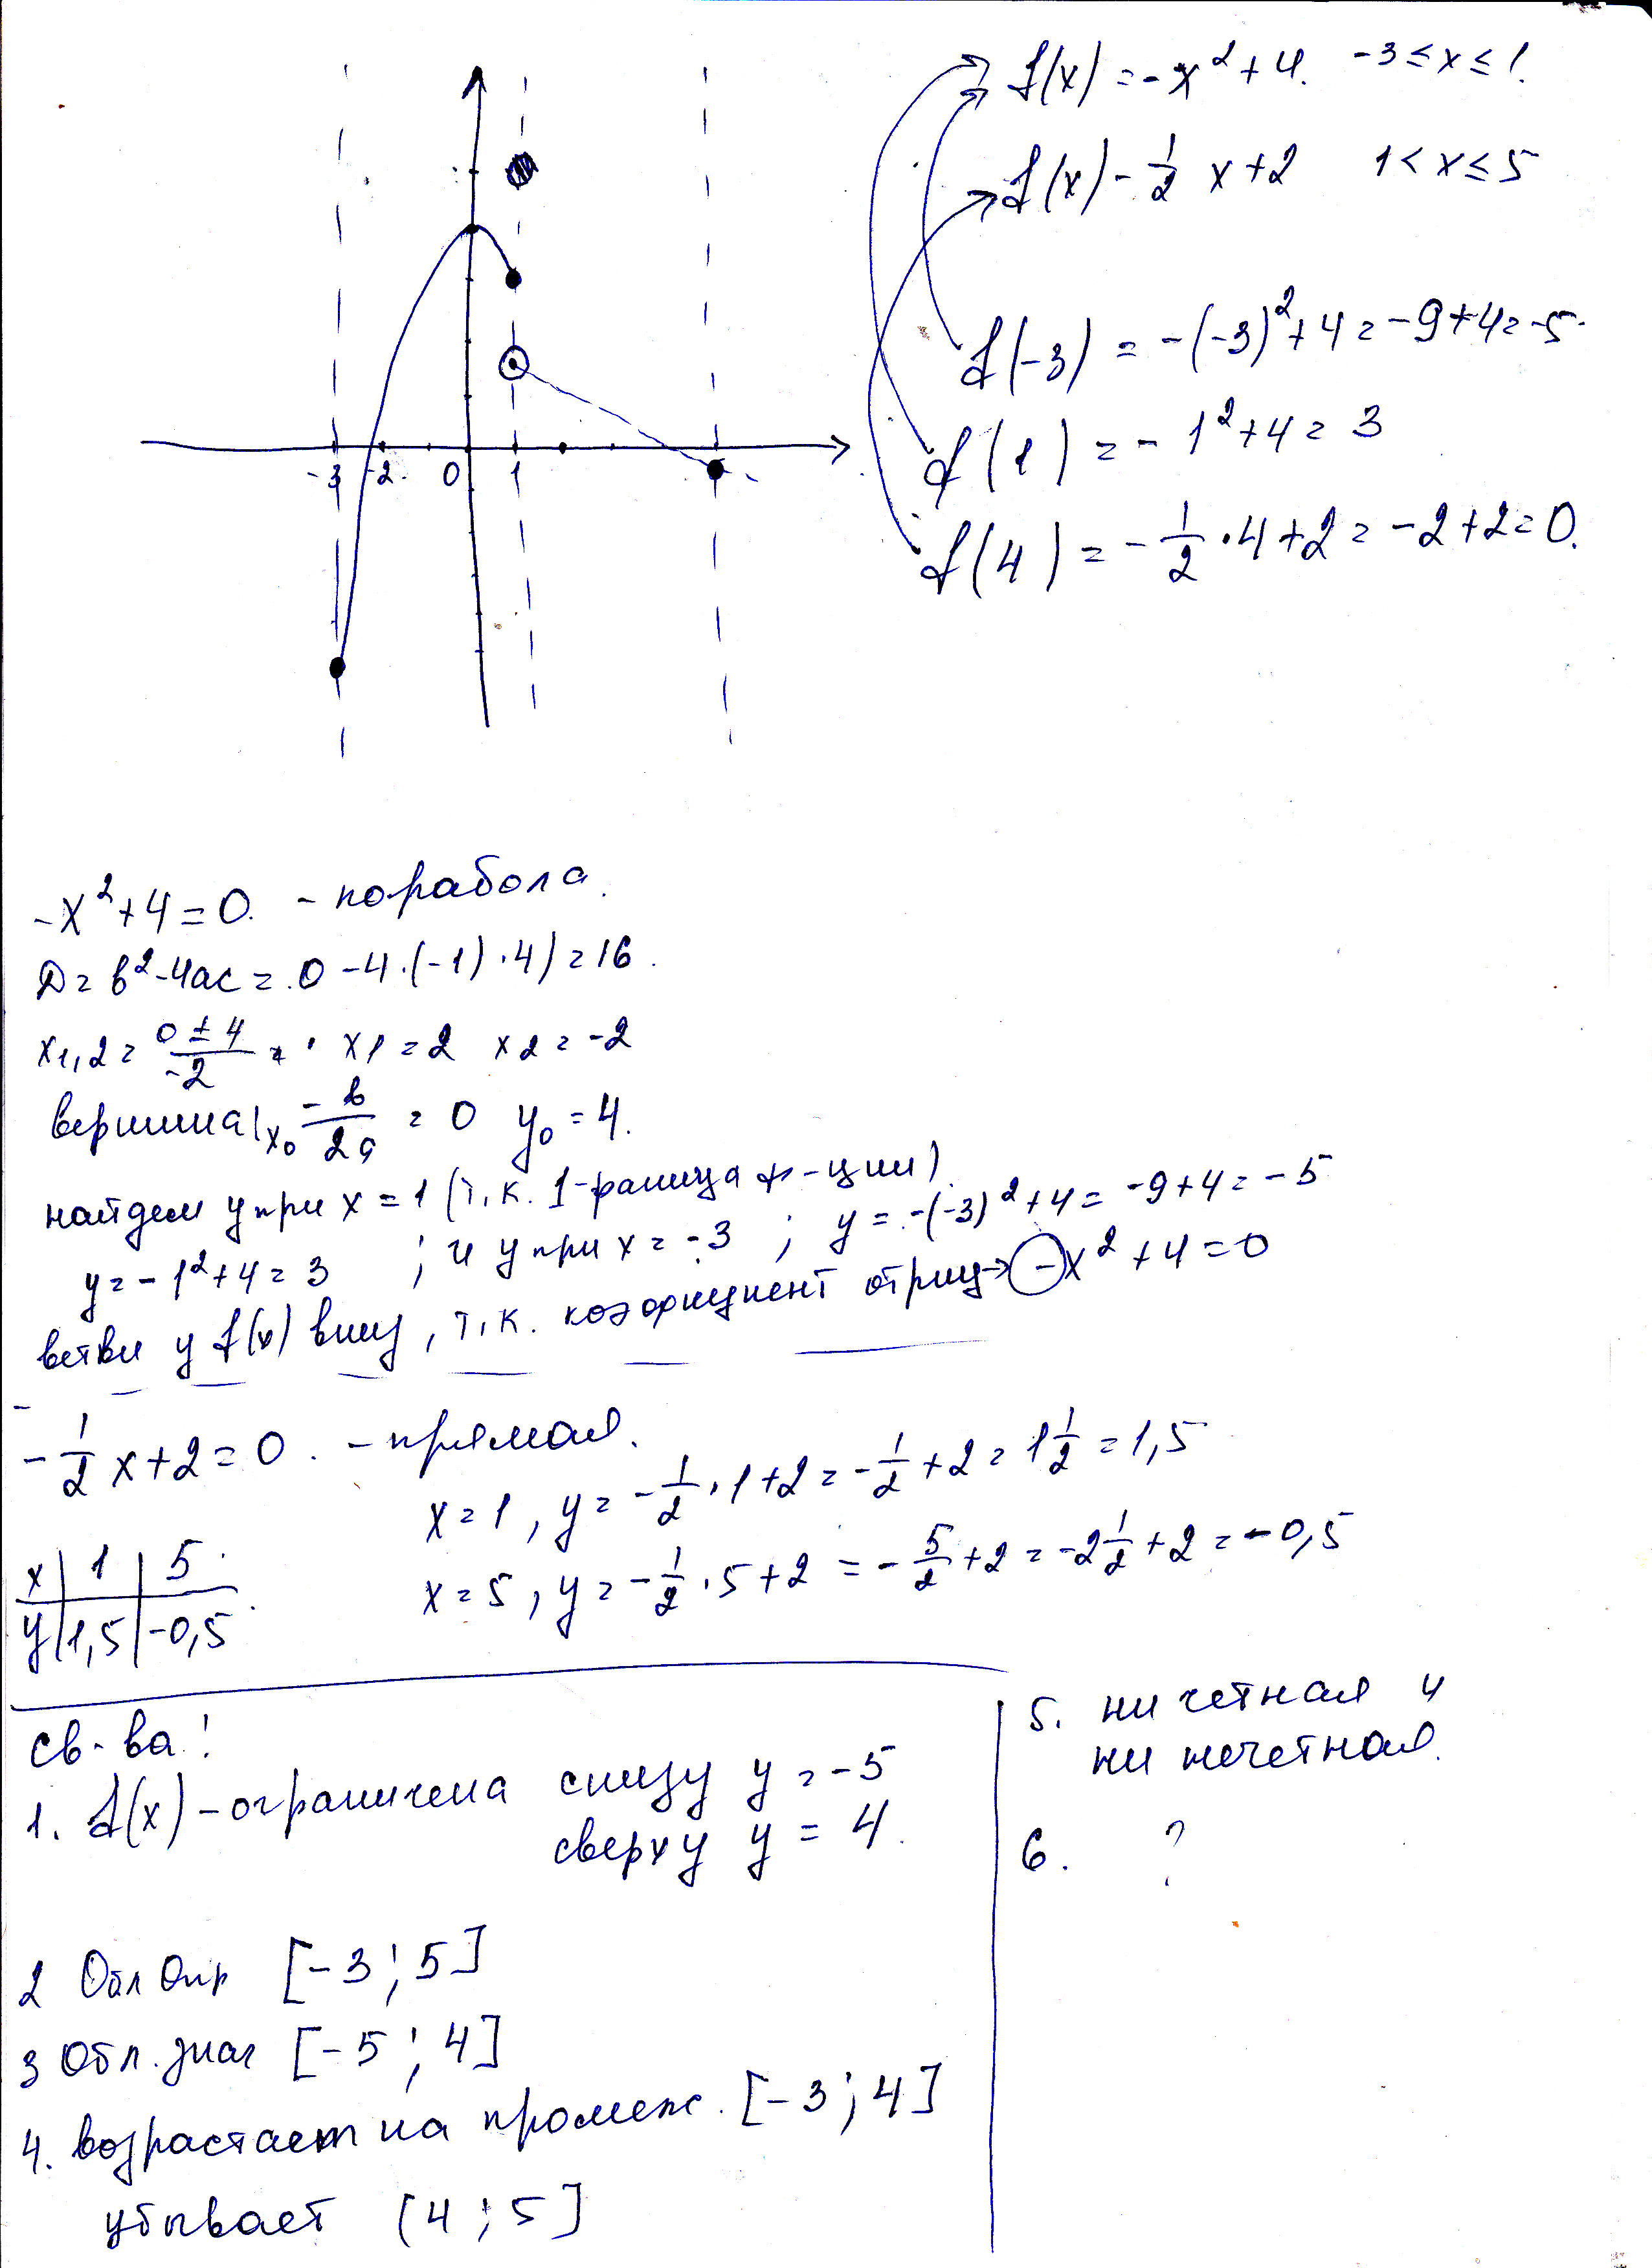 f(x) = -x² + 4. -3 ≤ x ≤ 1.
f(x) - 1/2 x + 2 1 < x ≤ 5
f(-3) = -(-3)² + 4 = -9 + 4 = -5.
f(1) = -1² + 4 = 3
f(4) = -1/2 · 4 + 2 = -2 + 2 = 0.
-3 -2. 0 1
-x² + 4 = 0. - порабола.
D = b² - 4ac = 0 - 4·(-1)·4) = 16.
x1,2 = (0 ± 4)/-2 = x1 = 2 x2 = -2
вершина x0 -b/2a = 0 y0 = 4.
найдем y при x = 1 (т.к. 1 - граница ф-ции)
y = -1² + 4 = 3 ; и y при x = -3 ; y = -(-3)² + 4 = -9 + 4 = -5
ветви у f(x) вниз, т.к. коэфициент отриц → -x² + 4 = 0
-1/2 x + 2 = 0. - прямая.
x = 1, y = -1/2 · 1 + 2 = -1/2 + 2 = 1 1/2 = 1,5
x = 5, y = -1/2 · 5 + 2 = -5/2 + 2 = -2 1/2 + 2 = -0,5
x | 1 | 5
y | 1,5 | -0,5
св-ва:
1. f(x) - ограничена снизу y = -5
сверху y = 4.
2 Обл Опр [-3; 5]
3 Обл. знач [-5; 4]
4. возрастает на промеж. [-3; 4]
убывает (4; 5]
5. ни четная и
ни нечетная.
6. ?